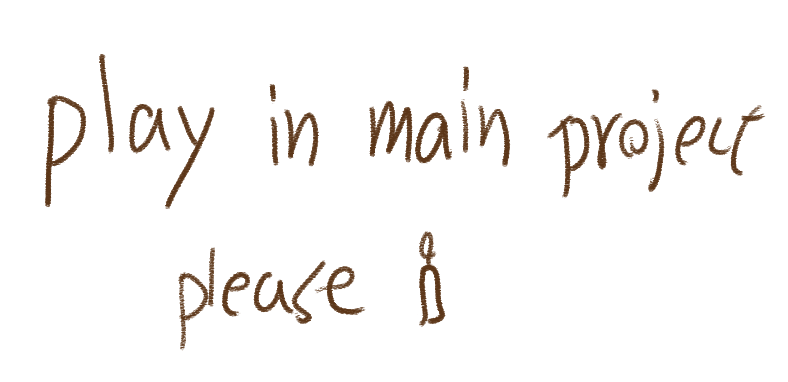 play in main project
please